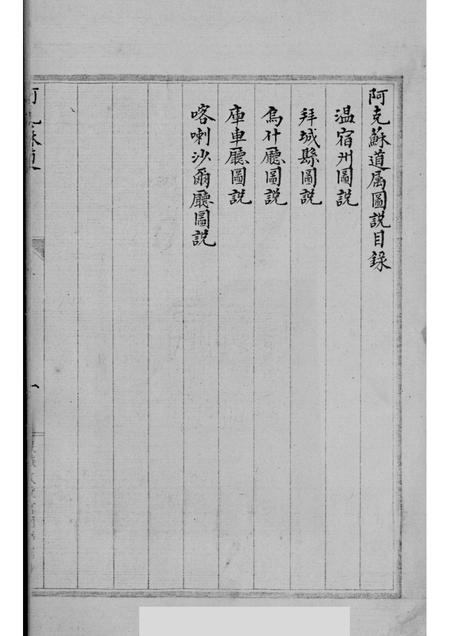 阿克蘇道属圖説目錄
温宿州圖説
拜城縣圖説
烏什廳圖説
庫車廳圖説
喀喇沙爾廳圖説